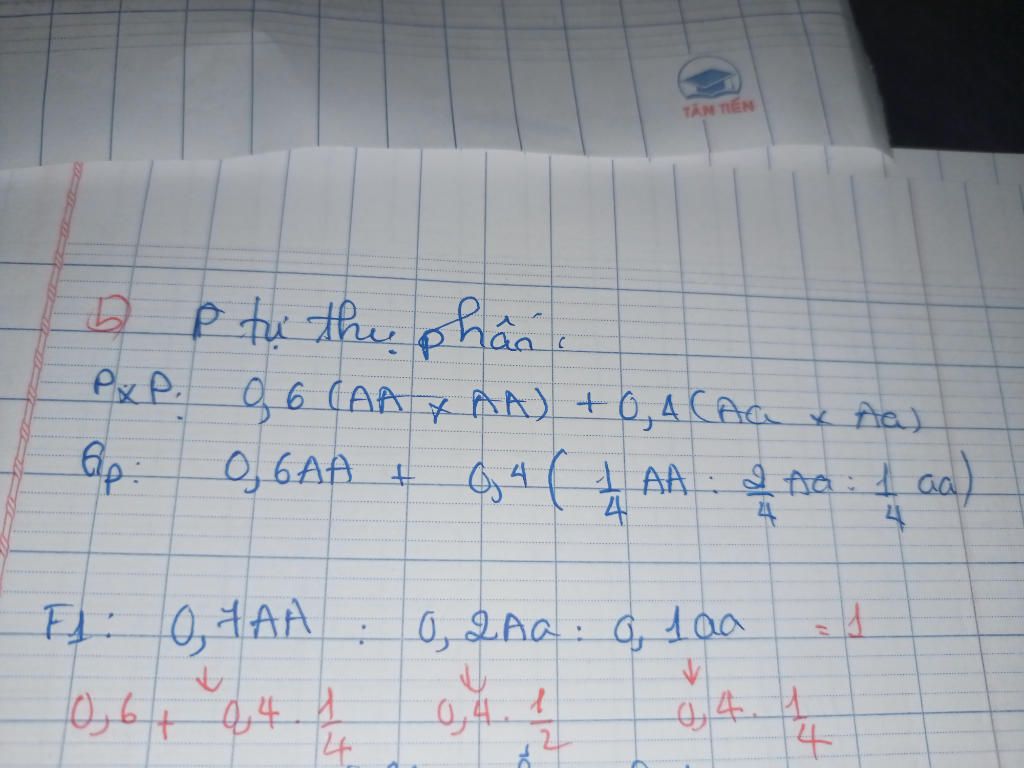 TÂN TIẾN
b P tự thụ phấn:
PxP: 0,6 (AA x AA) + 0,4 (Aa x Aa)
Gp: 0,6AA + 0,4 ( 1/4 AA : 2/4 Aa : 1/4 aa)
F1: 0,7AA : 0,2Aa : 0,1aa = 1
↓ ↓ ↓
0,6 + 0,4 . 1/4 0,4 . 1/2 0,4 . 1/4